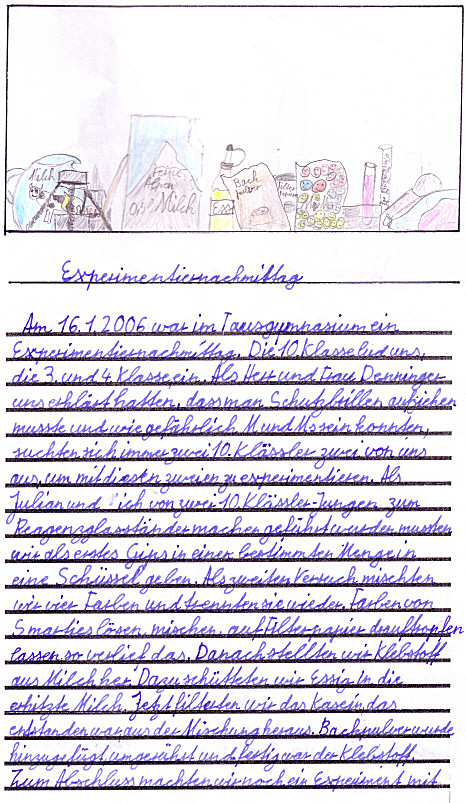 Milch
Feine
Alpen
Milch
Back
pulver
Filter
papier
Experimentiernachmittag
Am 16.1.2006 war im Tausgymnasium ein
Experimentiernachmittag. Die 10. Klasse lud uns,
die 3. und 4. Klasse, ein. Als Herr und Frau Denninger
uns erklärt hatten, dass man Schutzbrillen aufziehen
musste und wie gefährlich M und Ms sein konnten,
suchten sich immer zwei 10. Klässler zwei von uns
aus, um mit diesen zweien zu experimentieren. Als
Julian und ich von zwei 10. Klässler-Jungen zum
Reagenzglasständer machen geführt wurden mussten
wir als erstes Gips in einer bestimmten Menge in
eine Schüssel geben. Als zweiten Versuch mischten
wir vier Farben und trennten sie wieder. Farben von
Smarties lösen, mischen, auf Filterpapier drauftropfen
lassen so verlief das. Danach stellten wir Klebstoff
aus Milch her. Dazu schütteten wir Essig in die
erhitzte Milch. Jetzt filterten wir das Kasein, das
entstanden war aus der Mischung heraus. Backpulver wurde
hinzugefügt umgerührt und fertig war der Klebstoff.
Zum Abschluss machten wir noch ein Experiment mit